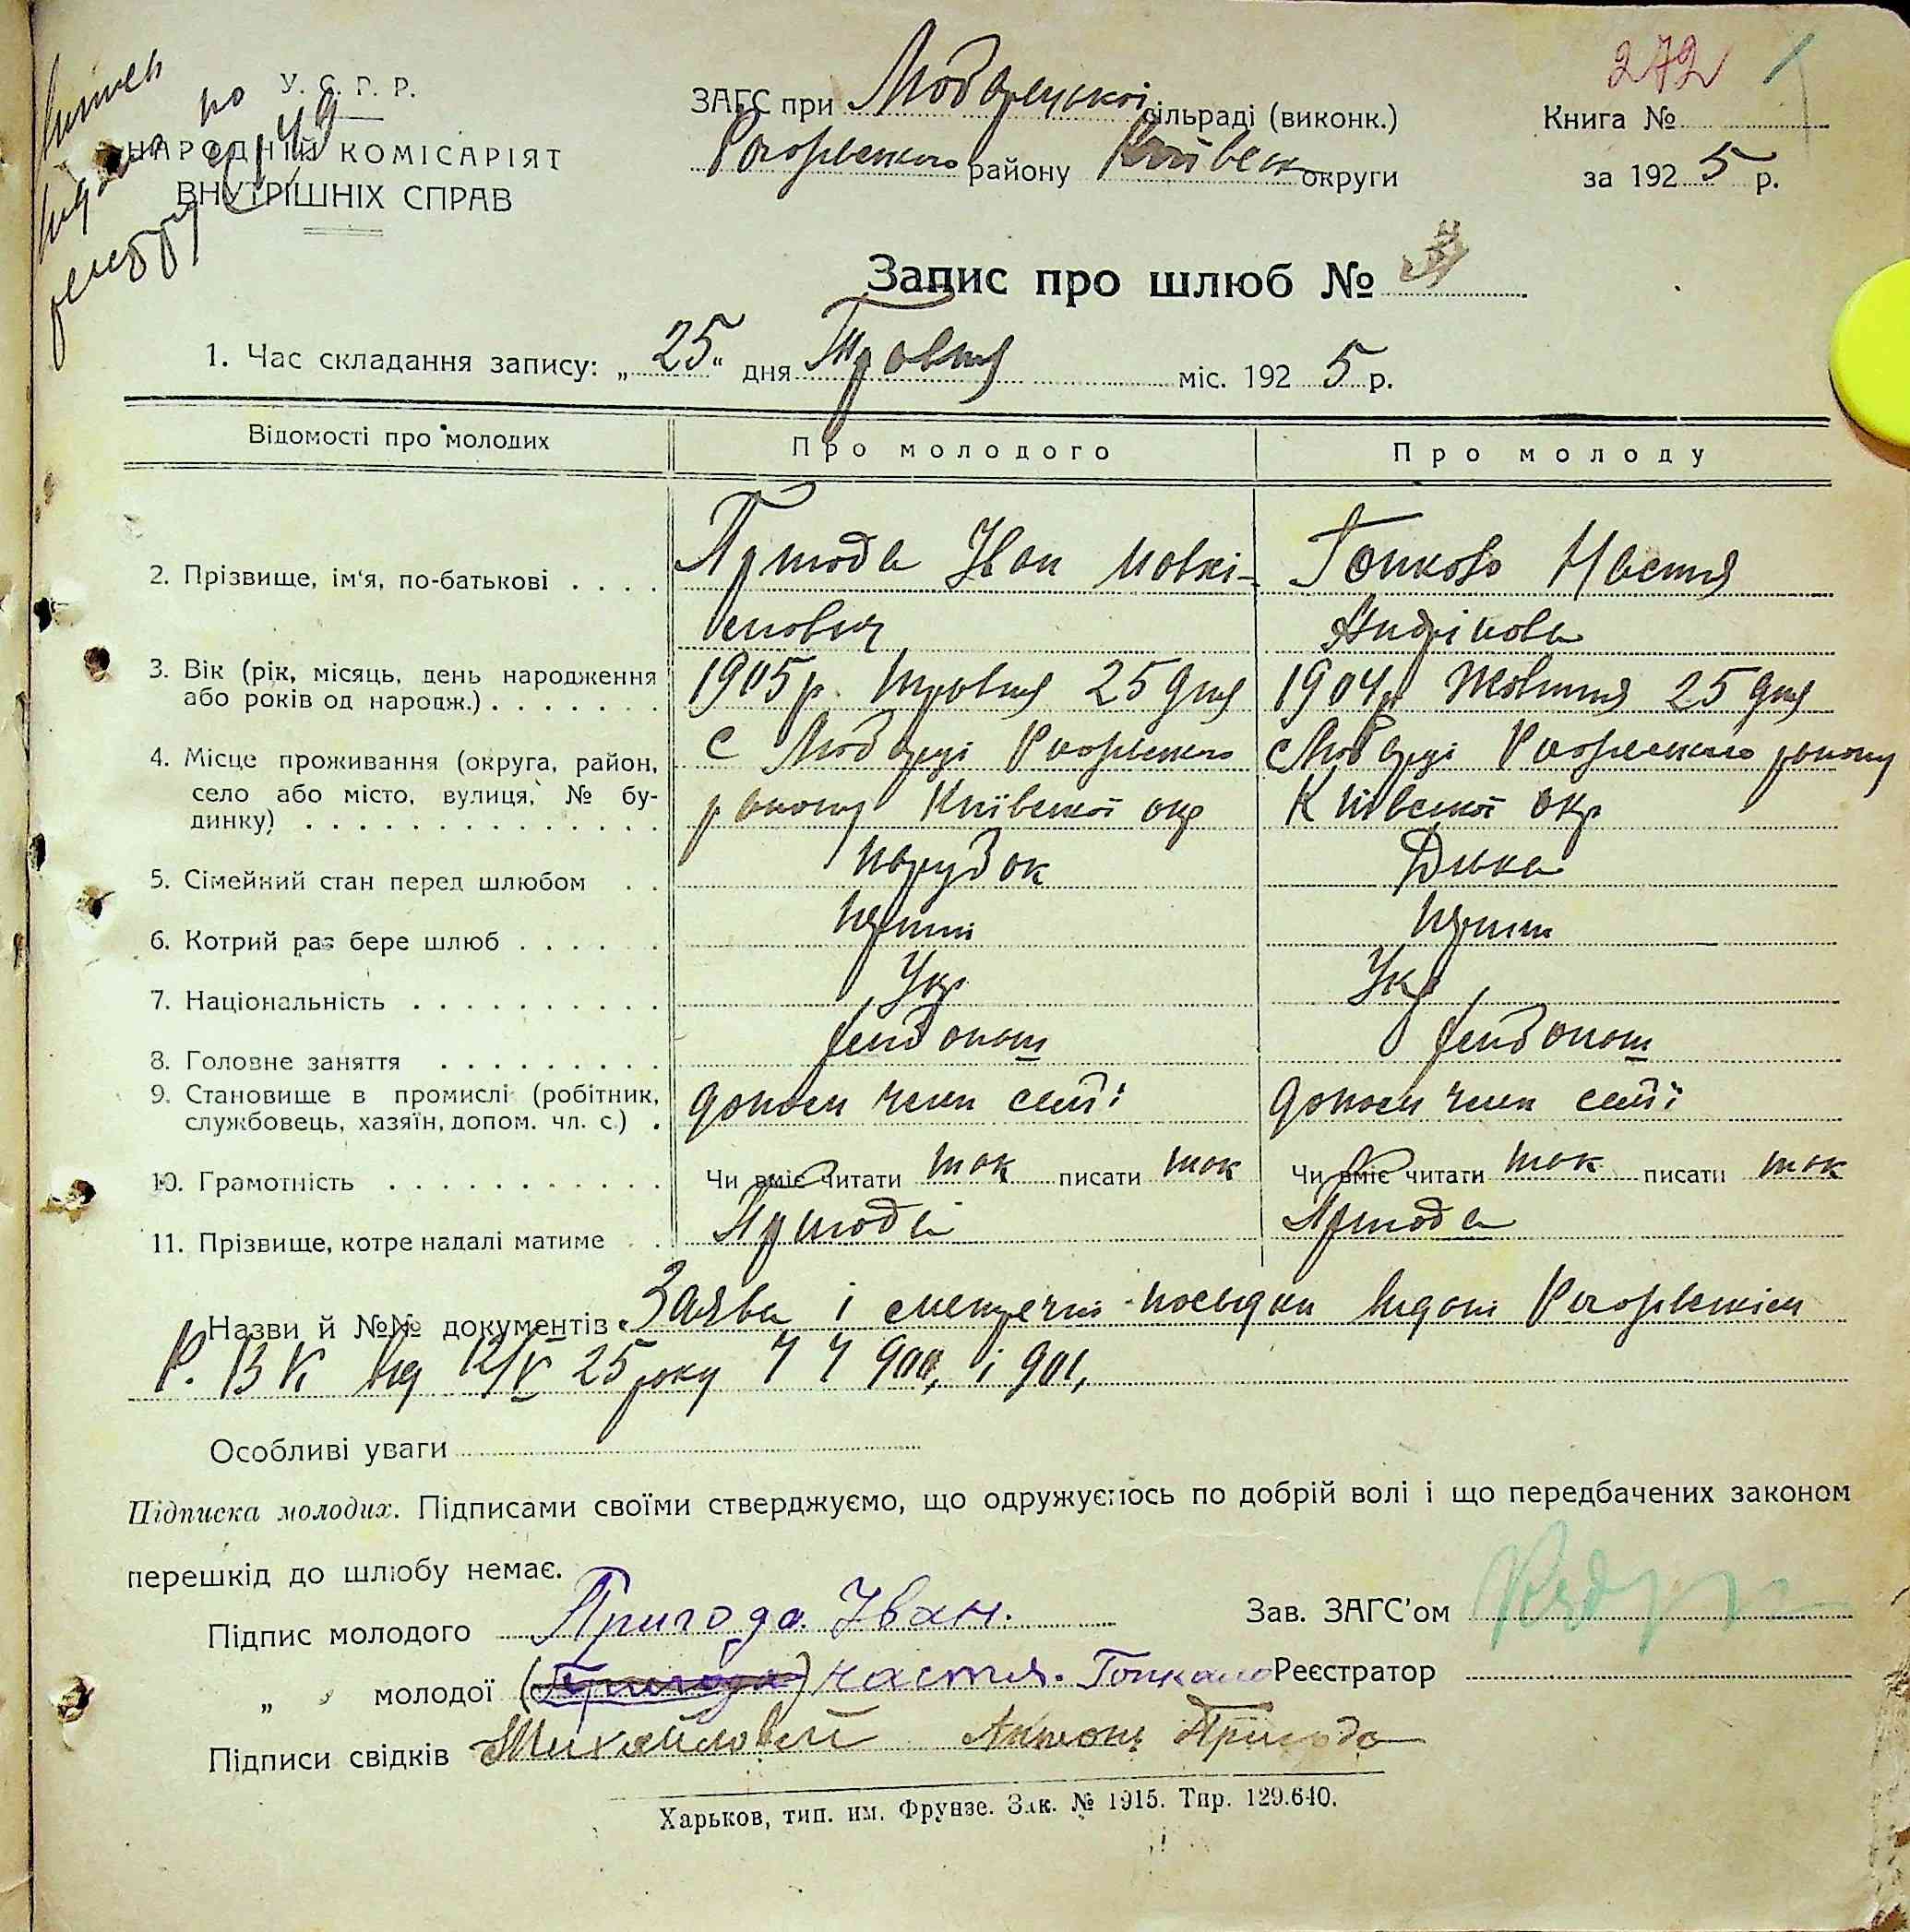 У. С. Р. Р.
НАРОДНІЙ КОМІСАРІЯТ
ВНУТРІШНІХ СПРАВ
ЗАГС при сільраді (виконк.)
району Київськ округи
272
Книга №
за 1925 р.
Запис про шлюб №
1. Час складання запису: „25" дня Травня міс. 1925 р.
Відомості про молодих
Про молодого
Про молоду
2. Прізвище, ім'я, по-батькові . . . .
Пригода Іван
Гопкало Настя
Андріівна
3. Вік (рік, місяць, день народження
або років од народж.) . . . . . . .
1905 р. травня 25 дня
1904 р Жовтня 25 дня
4. Місце проживання (округа, район,
село або місто, вулиця, № бу-
динку) . . . . . . . . . . . . . .
с
району Київської окр
с району
Київської окр
5. Сімейний стан перед шлюбом . .
парубок
Дівка
6. Котрий раз бере шлюб . . . . . .
перший
7. Національність . . . . . . . . . .
Укр
Укр
8. Головне заняття . . . . . . . . .
9. Становище в промислі (робітник,
службовець, хазяїн, допом. чл. с.) .
допом член семії
допом член семії
10. Грамотність . . . . . . . . . . .
Чи вміє читати так писати так
Чи вміє читати так писати так
11. Прізвище, котре надалі матиме . .
Пригода
Пригода
Назви й №№ документів Заява і посвідки видані
Р. В К від 12/V 25 року 900, і 901,
Особливі уваги
Підписка молодих. Підписами своїми стверджуємо, що одружуємось по добрій волі і що передбачених законом
перешкід до шлюбу немає.
Підпис молодого Пригода Іван.
Зав. ЗАГС'ом
„ молодої (Пригода) настя. Гопкало
Реєстратор
Підписи свідків Антон Пригода
Харьков, тип. им. Фрунзе. Зак. № 1915. Тир. 129.640.